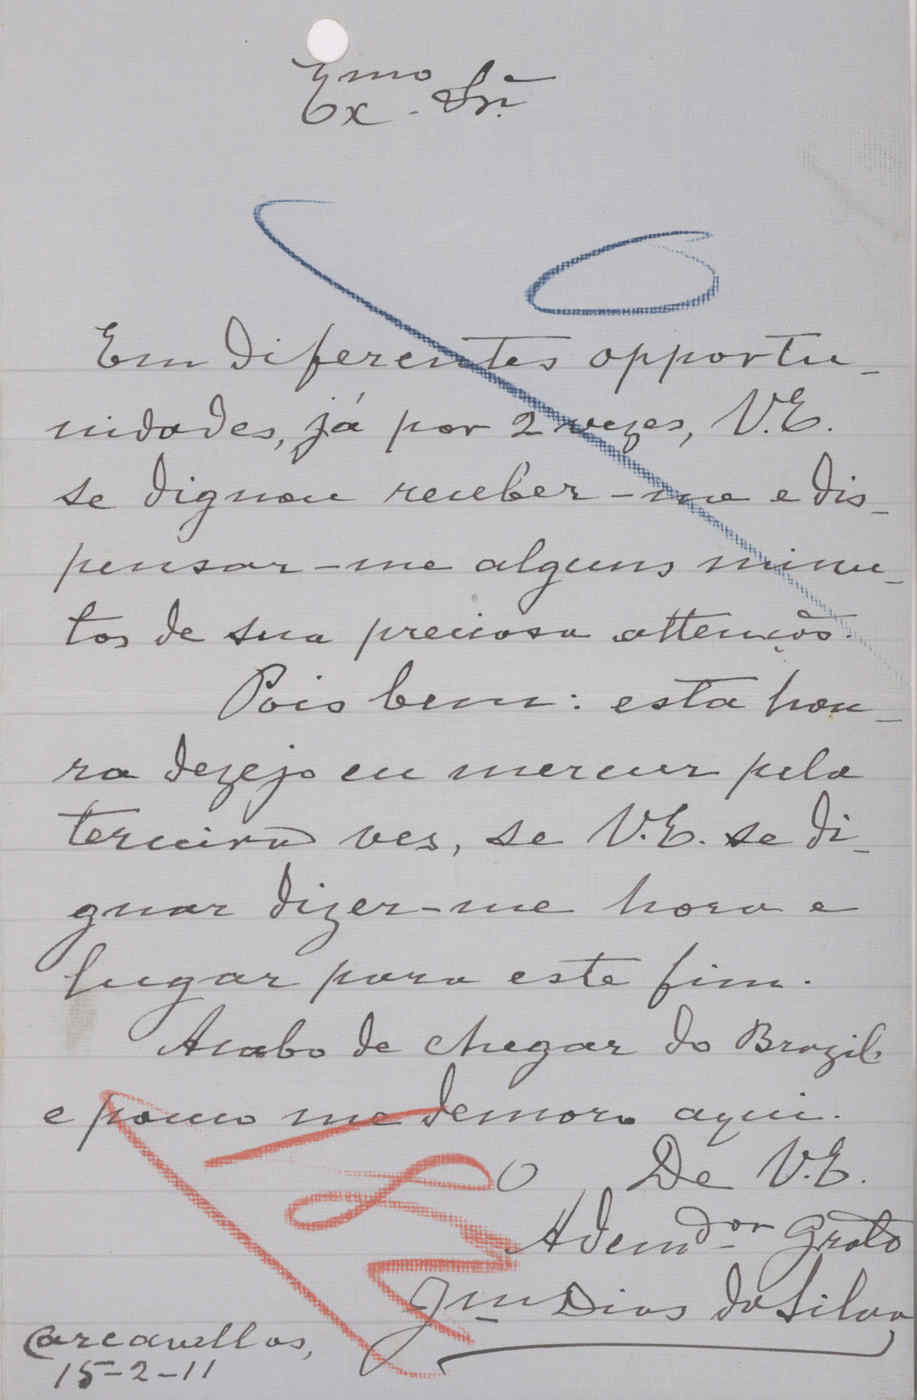 Exmo Snr.
Em diferentes opportu-
nidades, já por 2 vezes, V.E.
se dignou receber-me e dis-
pensar-me alguns minu-
tos de sua preciosa attenção.
Pois bem: esta hon-
ra dezejo eu merecer pela
terceira ves, se V.E. se di-
gnar dizer-me hora e
lugar para este fim.
Acabo de chegar do Brazil
e pouco me demoro aqui.
De V.E.
O Admdor Grato
Jm Dias da Silva
Carcavellos,
15-2-11